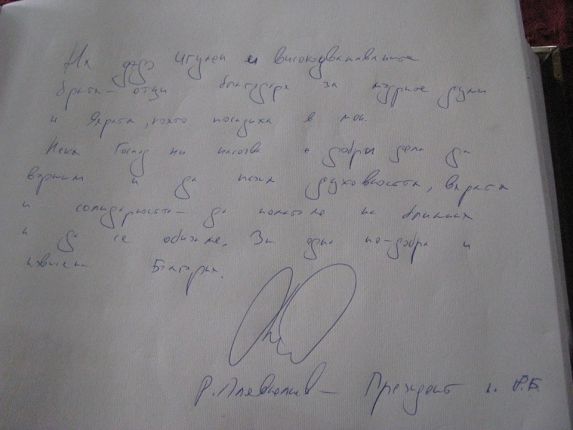 На дядо игумен и високоуважаваните
братя-отци благодаря за мъдрите думи
и вярата, която посадиха в мен.
Нека Господ ни насочва добри дела да
вършим и да пази духовността, вярата
и солидарността - да помагаме на ближния
и да се обичаме. За една по-добра и
България.
Р. Плевнелиев - Президент на Р.Б.